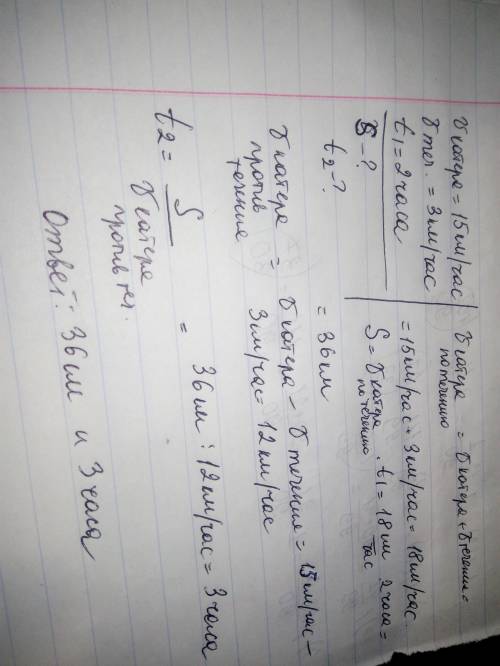 υ катера = 15 км/час
υ теч. = 3 км/час
t₁ = 2 часа
S - ?
t₂ - ?
υ катера по течению = υ катера + υ течения =
= 15 км/час + 3 км/час = 18 км/час.
S = υ катера по течению · t₁ = 18 км/час · 2 часа =
= 36 км
υ катера против течения = υ катера - υ течения = 15 км/час -
3 км/час = 12 км/час
t2 = S / υ катера против теч. = 36 км : 12 км/час = 3 часа
Ответ: 36 км и 3 часа